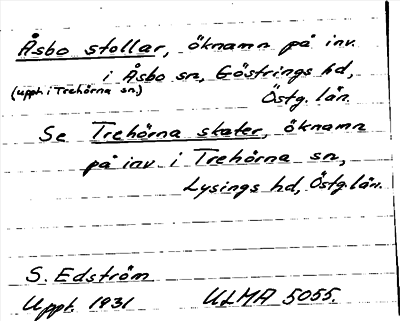 Åsbo stollar, öknamn på inv.
i Åsbo sn, Göstrings hd,
(uppt. i Trehörna sn.)
Östg. län.
Se Trehörna skater, öknamn
på inv i Trehörna sn,
Lysings hd, Östg. län.
S. Edström
Uppt. 1931 ULMA 5055.